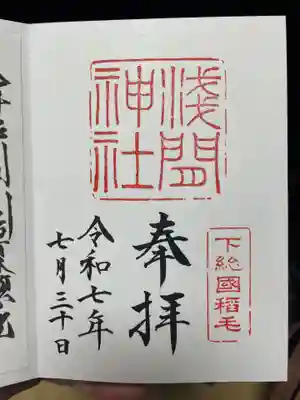 浅間
神社
下総國稲毛
奉拝
令和七年
七月三十日